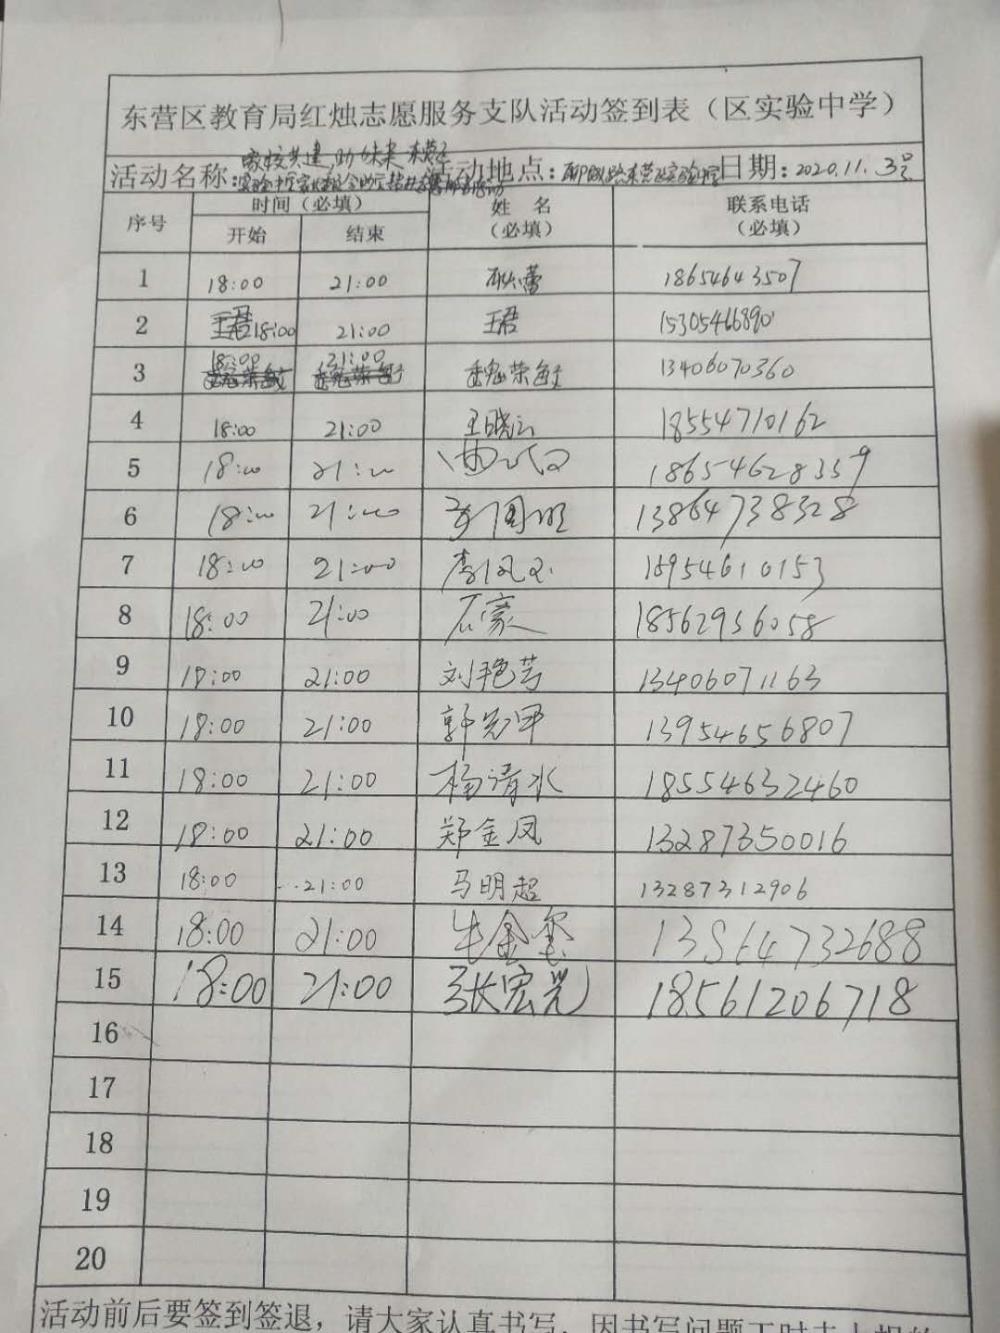 东营区教育局红烛志愿服务支队活动签到表（区实验中学）
活动名称：家校共建，助力未来 东营区 活动地点： 日期：2020.11.3号
序号 时间（必填） 姓名（必填） 联系电话（必填）
开始 结束
1 18:00 21:00 18654643507
2 18:00 21:00 王君 15305466890
3 18:00 21:00 荣 13406070360
4 18:00 21:00 王晓云 18554710162
5 18:00 21:00 18654628359
6 18:00 21:00 13864738328
7 18:00 21:00 李 18954610153
8 18:00 21:00 石豪 18562956058
9 18:00 21:00 刘艳芳 13406071163
10 18:00 21:00 郭 13954656807
11 18:00 21:00 杨清水 18554632460
12 18:00 21:00 郑金凤 13287350016
13 18:00 21:00 马明超 13287312906
14 18:00 21:00 牛金玺 13864732688
15 18:00 21:00 张宏光 18561206718
16
17
18
19
20
活动前后要签到签退，请大家认真书写，因书写问题